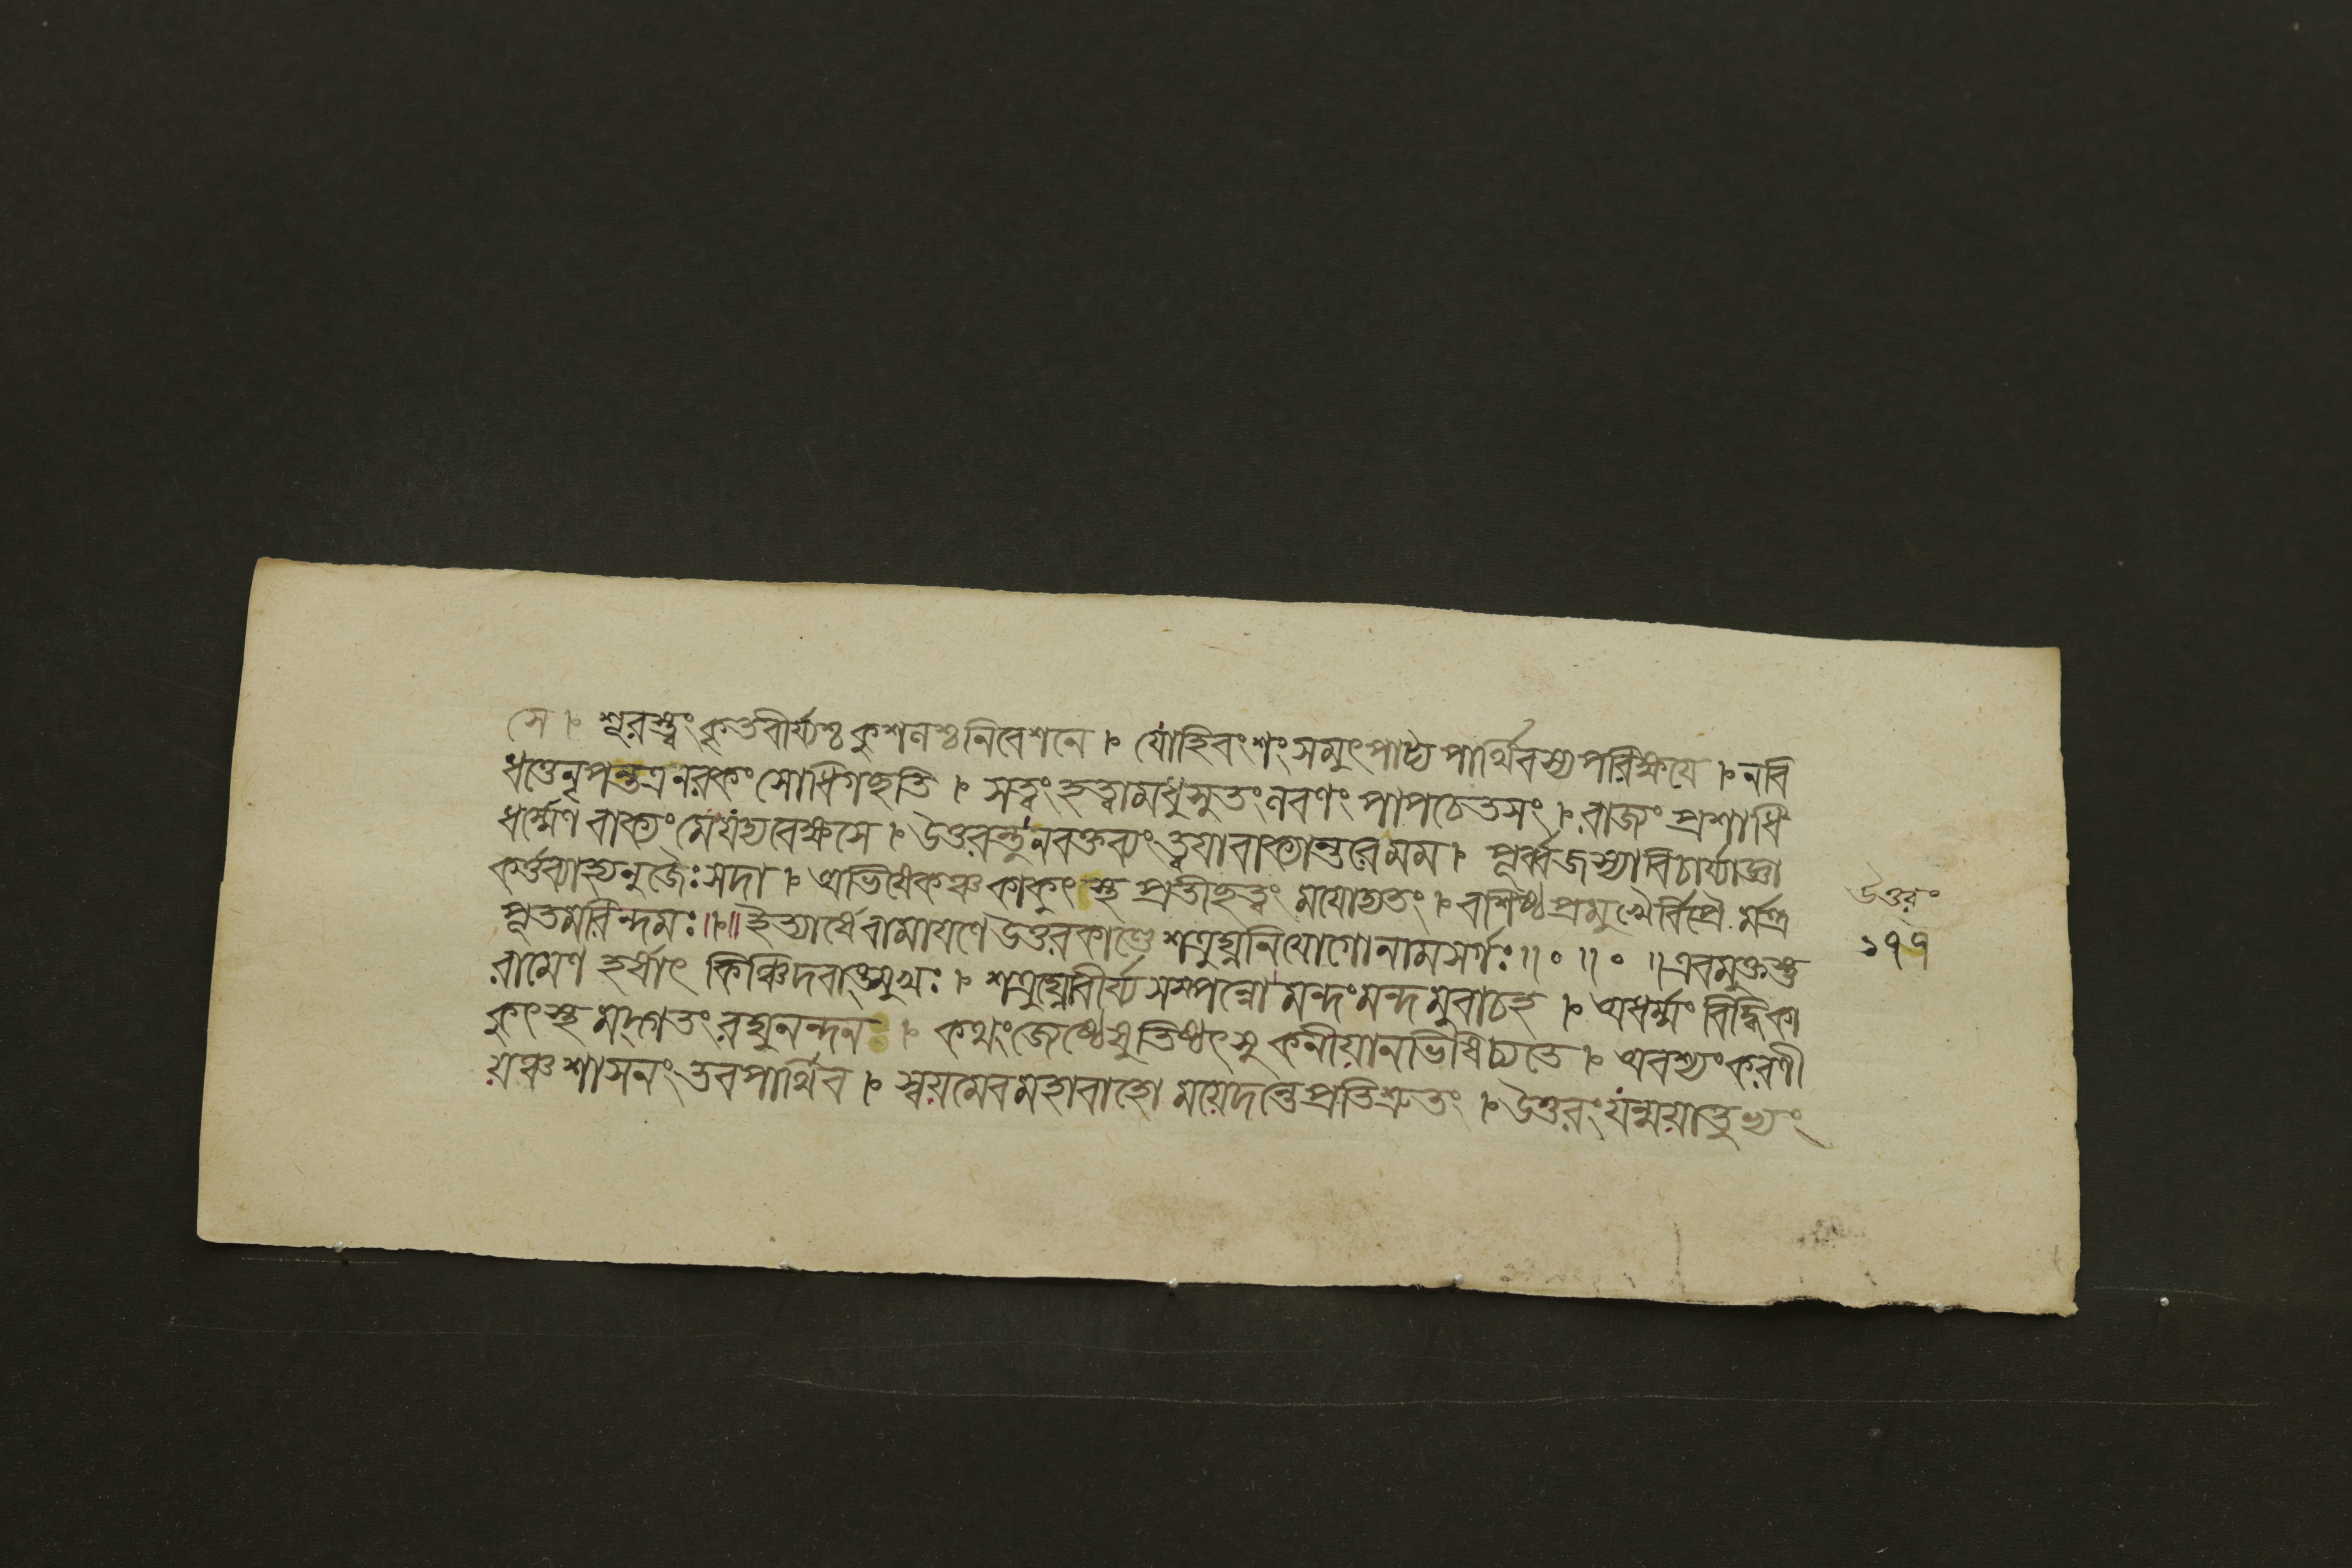 সে ৷ শূরস্ত্বং কৃতবীর্য্যশ্চ কুশলশ্চ নিবেশনে ৷ যোহিবংশং সমুৎপাট্য পার্থিবস্য পরিক্ষয়ে ৷ নবি
ধত্তে নৃপন্তত্র নরকং সোধিগচ্ছতি ৷ সত্বং হত্বামধুসুতং লবণং পাপচেতসং ৷ রাজ্যং প্রশাধি
ধর্ম্মেণ বাক্যং মেযদ্যবেক্ষসে ৷ উত্তরন্তুনবক্তব্যং ত্বয়াবাক্যান্তরেমম ৷ পূর্ব্বজস্যাবিচার্য্যাজ্ঞা
কর্ত্তব্যাহ্যনুজৈঃ সদা ৷ অভিষেকঞ্চ কাকুৎস্থ প্রতীচ্ছত্বং ময়োদ্যতং ৷ বশিষ্ঠপ্রমুখৈর্বিপ্রৈ র্মন্ত্র
পূতমরিন্দমঃ ॥৷॥ ইত্যার্ষেরামায়ণে উত্তরকাণ্ডে শত্রুঘ্ননিয়োগোনামসর্গঃ ॥ ৹ ॥ ৹ ॥ এবমুক্তস্তু
রামেণ হর্ষাৎ কিঞ্চিদবাঙ্মুখঃ ৷ শত্রুঘ্নোবীর্য্যসম্পন্নো মন্দং মন্দমুবাচহ ৷ অধর্ম্মং বিদ্ধিকা
কুৎস্থ মদ্গতং রঘুনন্দন ৷ কথং জেষ্ঠেষুতিষ্ঠৎসু কনীয়ানভিষিচ্যতে ৷ অবশ্যং করণী
য়ঞ্চ শাসনং তবপার্থিব ৷ স্বয়মেবমহাবাহো ময়েদন্তে প্রতিশ্রুতং ৷ উত্তরং যন্ময়াতুভ্যং
উত্তরং
১৭৭